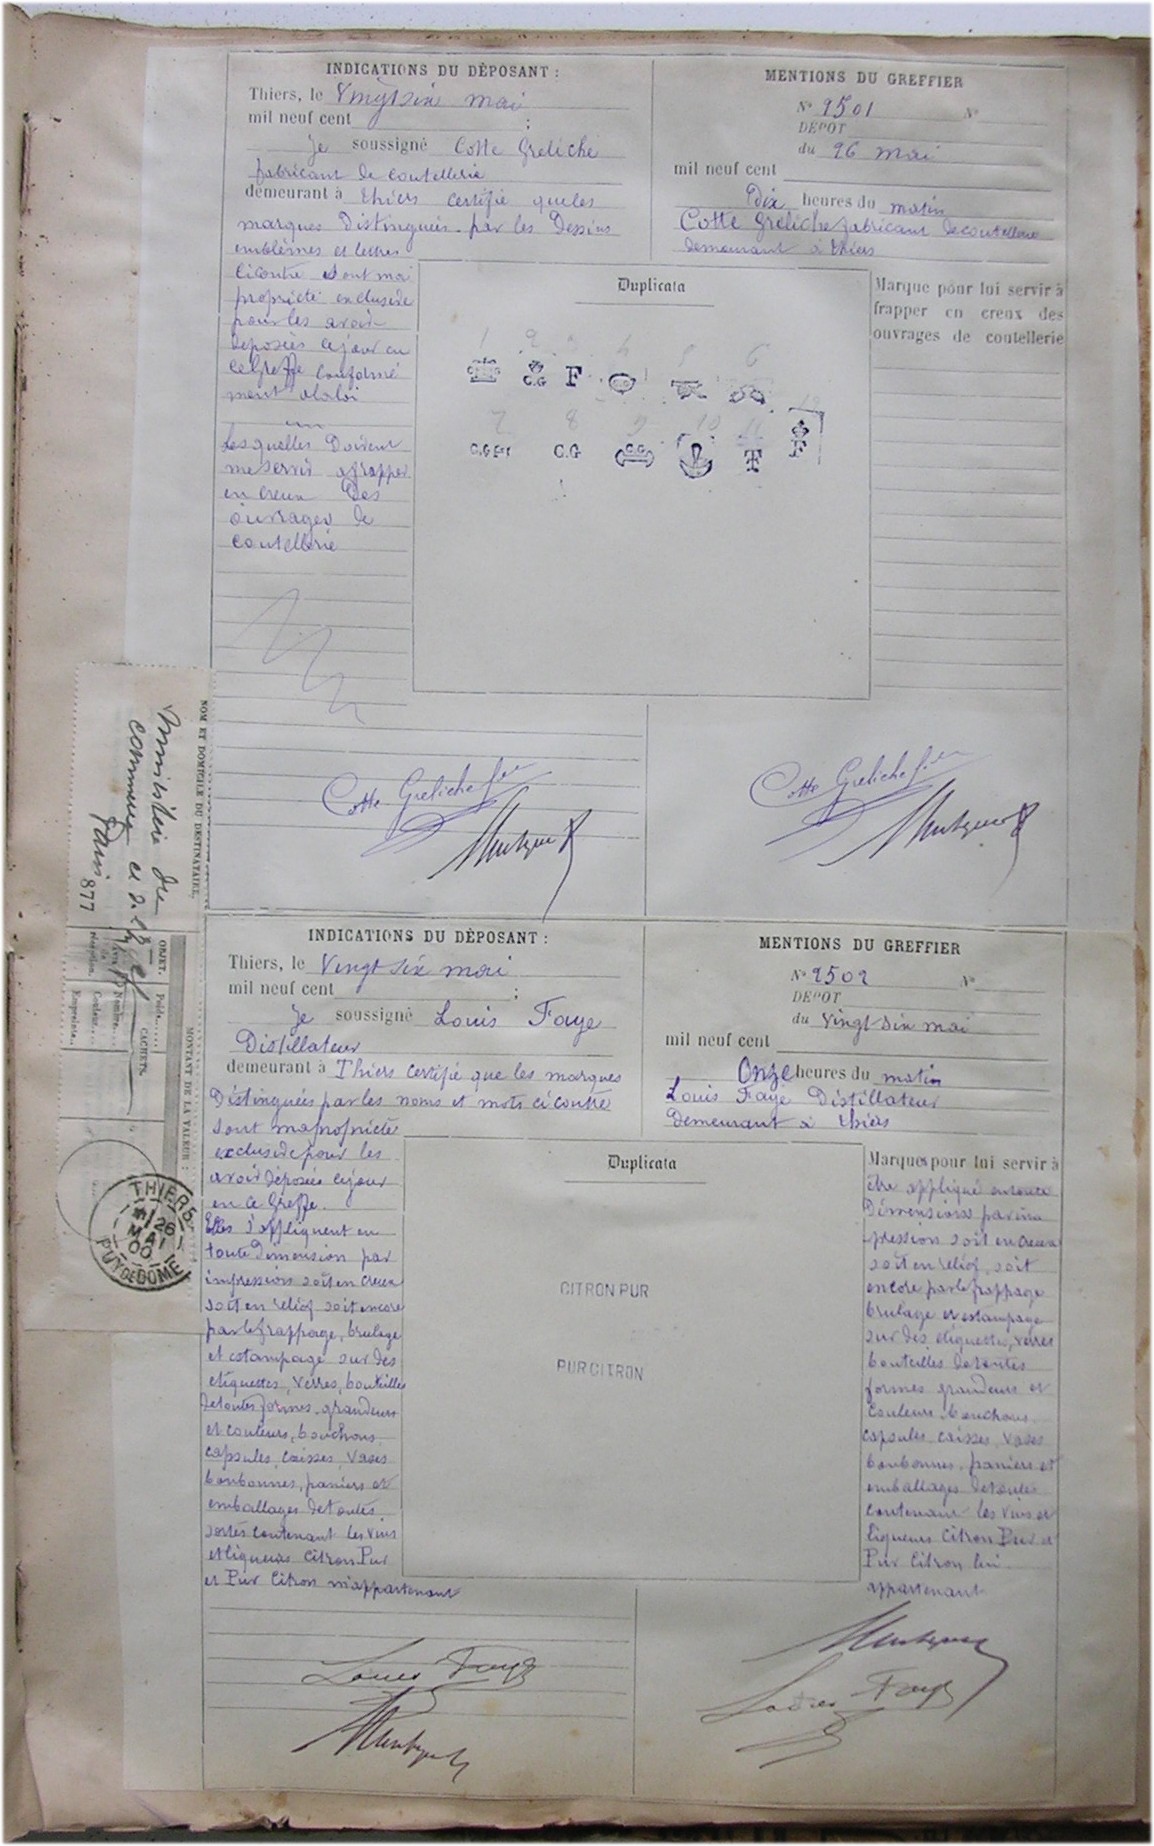 INDICATIONS DU DÉPOSANT :
Thiers, le Vingt six mai
mil neuf cent ;
Je soussigné Cotte Greliche
fabricant de coutellerie
demeurant à thiers certifie que les
marques Distinguées par les Dessins
emblèmes et lettres
ci contre sont ma
propriété exclusive
pour les avoir
deposées ce jour en
ce Greffe conformé
ment ala loi
Lesquelles Doivent
me servir a frapper
en creux Des
ouvrages de
coutellerie
MENTIONS DU GREFFIER
N° 2501 N°
DÉPOT
du 26 mai
mil neuf cent
Dix heures du matin
Cotte Greliche fabricant de coutellerie
demeurant à thiers
Duplicata
1 2 3 4 5 6
C.G F
7 8 9 10 11 12
C.G C.G T F
Marque pour lui servir à
frapper en creux des
ouvrages de coutellerie
Cotte Greliche
Cotte Greliche
NOM ET DOMICILE DU DESTINATAIRE.
Ministère du
commerce et de
Paris
877
OBJET.
Poids
CACHETS.
Nombre
Couleur
Empreinte
MONTANT DE LA VALEUR :
THIERS
26
MAI
00
PUY DE DOME
INDICATIONS DU DÉPOSANT :
Thiers, le Vingt six mai
mil neuf cent ;
Je soussigné Louis Faye
Distillateur
demeurant à Thiers certifie que les marques
Distinguées par les noms et mots ci contre
sont ma propriété
exclusive pour les
avoir déposées ce jour
en ce Greffe.
Elles s'appliquent en
toute Dimension par
impression soit en creux
soit en relief soit encore
par le frappage, brulage
et estampage sur des
etiquettes, verres, bouteilles
de toutes formes, grandeurs
et couleurs, bouchons
capsules, caisses, vases
bonbonnes, paniers et
emballages de toutes
sortes contenant les vins
et liqueurs Citron Pur
et Pur Citron m'appartenant
MENTIONS DU GREFFIER
N° 2502 N°
DÉPOT
du Vingt six mai
mil neuf cent
Onze heures du matin
Louis Faye Distillateur
Demeurant à thiers
Duplicata
CITRON PUR
PUR CITRON
Marques pour lui servir à
être appliqué en toute
Dimensions par im
pression soit en creux
soit en relief, soit
encore par le frappage
brulage et estampage
sur des etiquettes, verres
bouteilles de toutes
formes grandeurs et
couleurs, bouchons
capsules, caisses, vases
bonbonnes, paniers et
emballages de toutes
contenant les vins et
liqueurs Citron Pur et
Pur Citron lui
appartenant
Louis Faye
Louis Faye